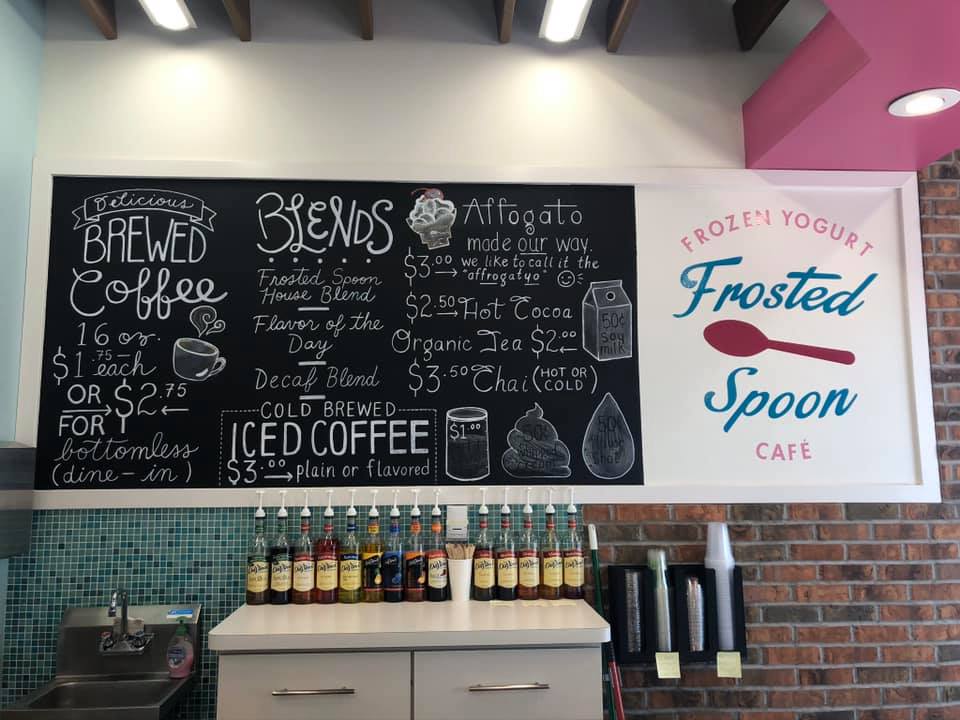 Delicious
BREWED
Coffee
16 oz.
$1.75 each
OR $2.75
FOR
bottomless
(dine-in)
BLENDS
Frosted Spoon
House Blend
Flavor of the
Day
Decaf Blend
COLD BREWED
ICED COFFEE
$3.00 → plain or flavored
Affogato
made our way.
$3.00 → we like to call it the
"affrogatyo"
$2.50 → Hot Cocoa
Organic Tea $2.00 ←
$3.50 Chai (HOT OR
COLD)
50¢
soy
milk
$1.00
50¢
50¢
FROZEN YOGURT
Frosted
Spoon
CAFÉ